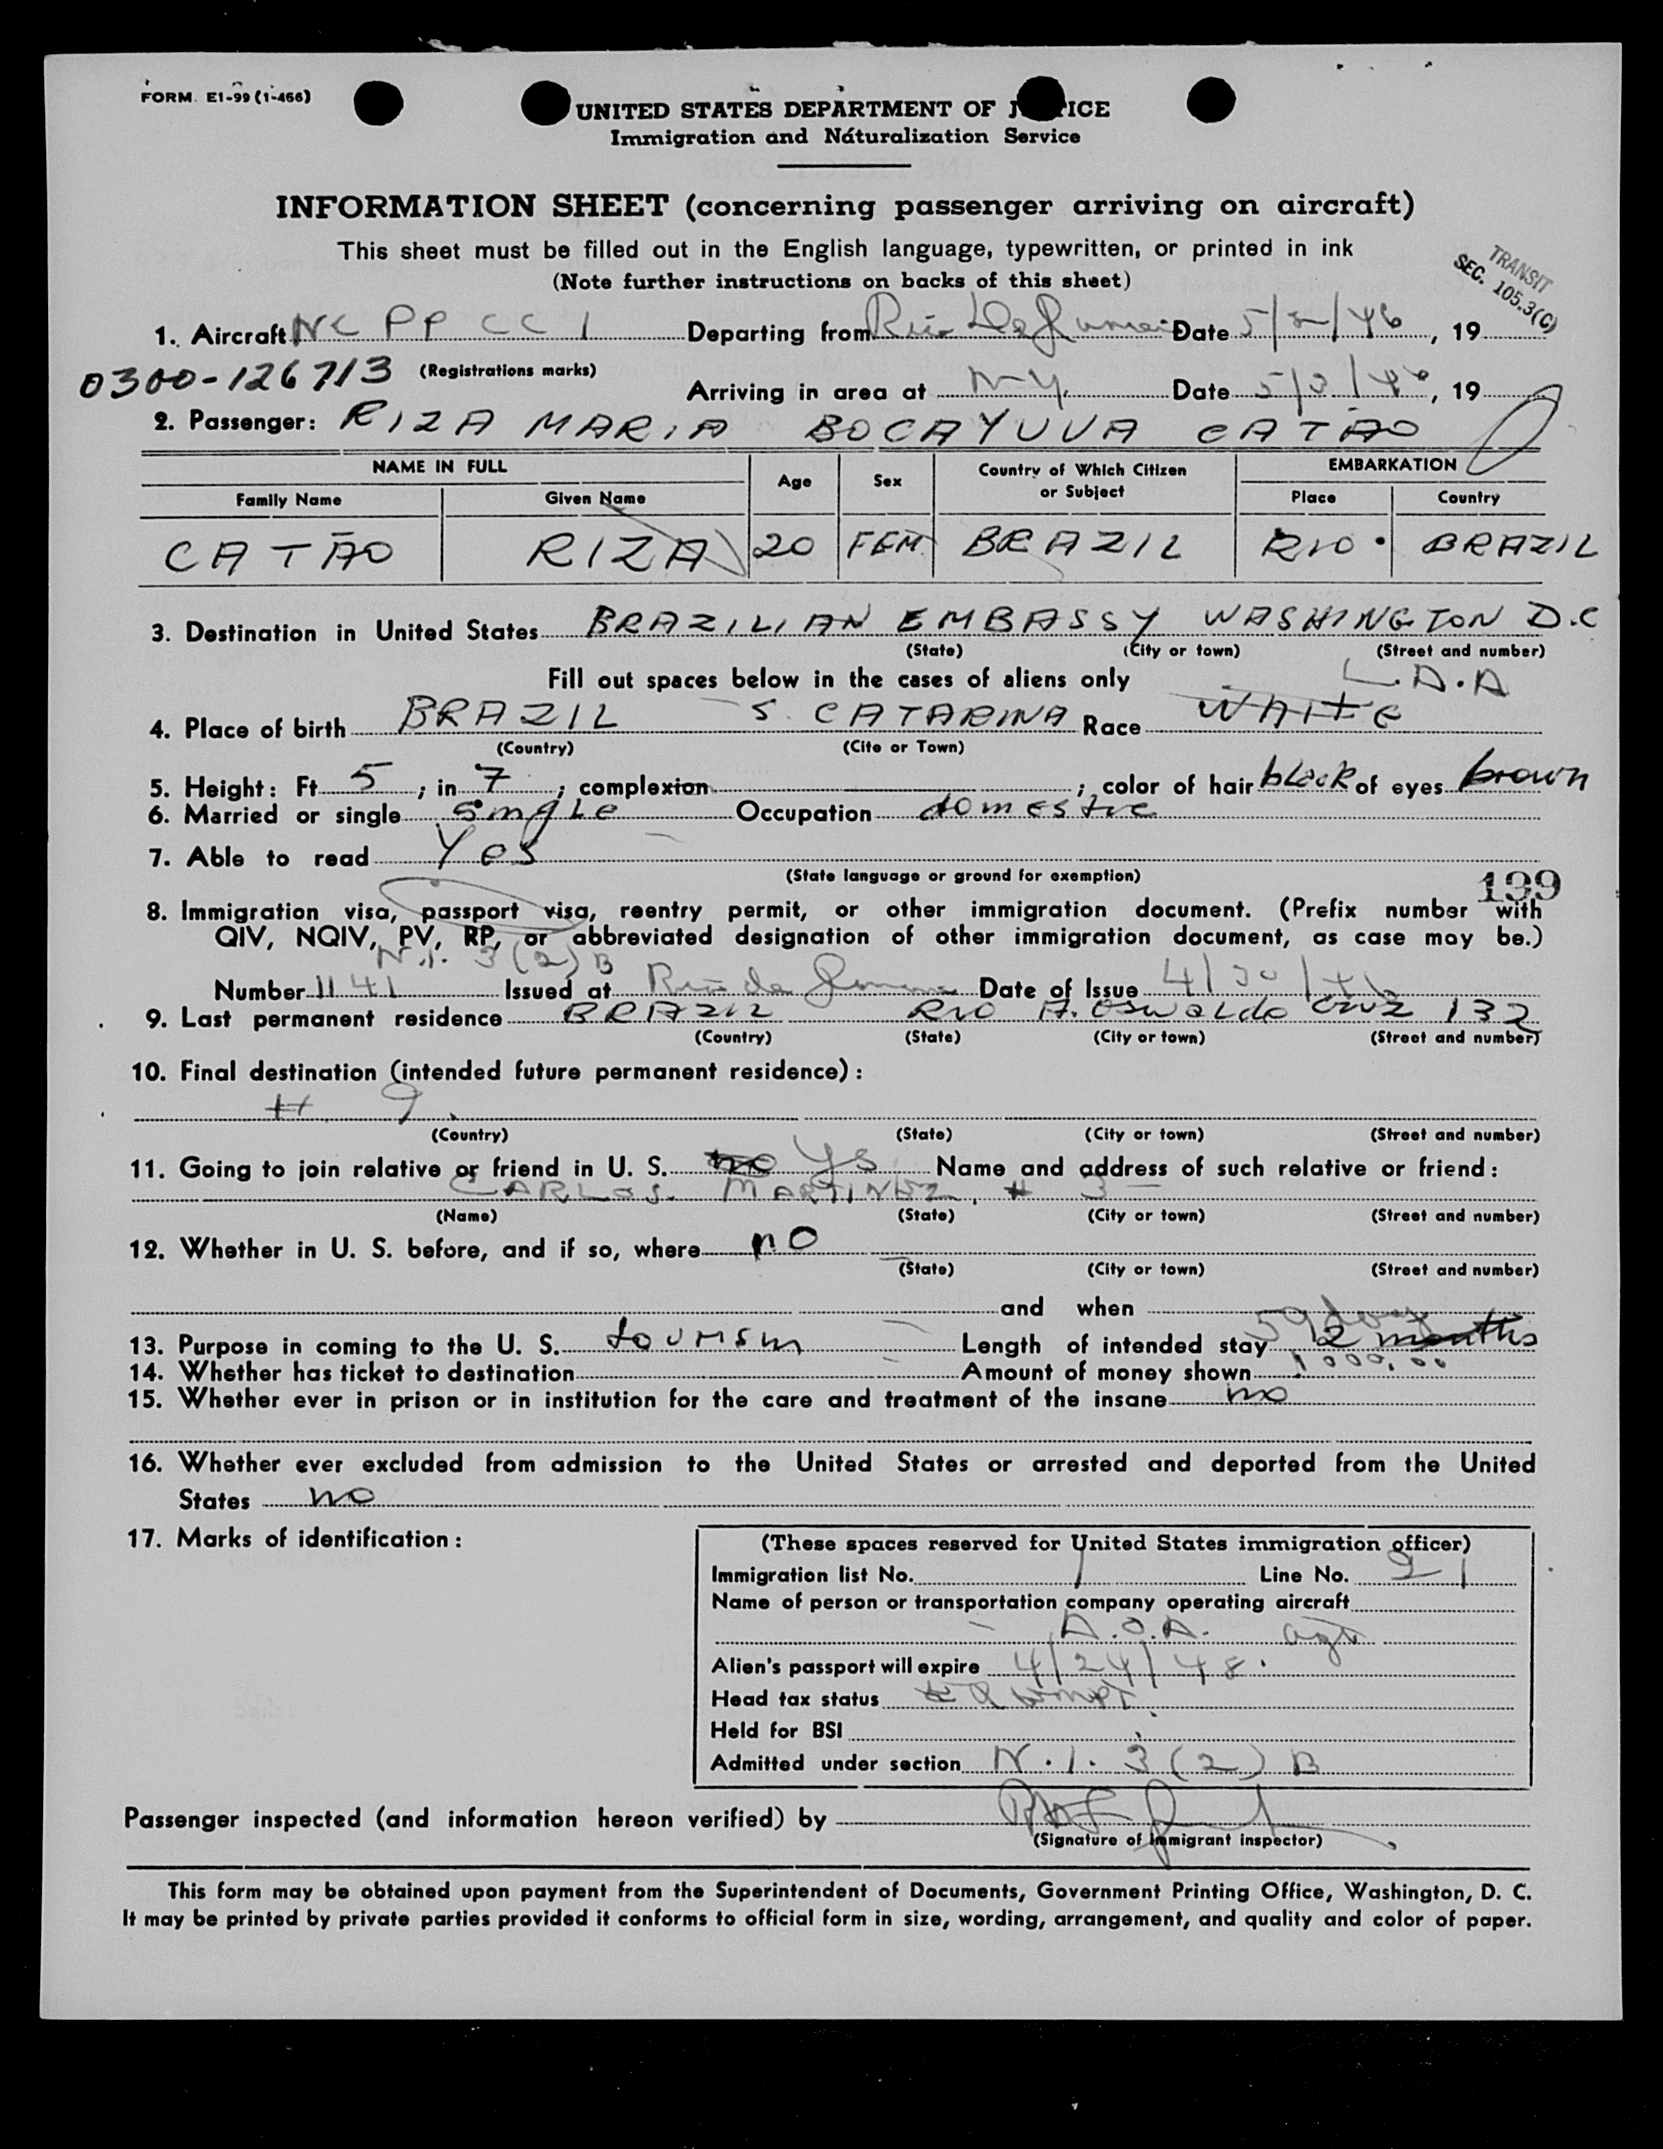 FORM E1-99 (1-466)
UNITED STATES DEPARTMENT OF J ICE
Immigration and Naturalization Service
INFORMATION SHEET (concerning passenger arriving on aircraft)
This sheet must be filled out in the English language, typewritten, or printed in ink
(Note further instructions on backs of this sheet)
TRANSIT
SEC. 105.3(C)
1. Aircraft NC PP CC 1 Departing from Rio De Date 5/2/46, 19
0300-126713 (Registrations marks)
Arriving in area at N-Y. Date 5/3/46, 19
2. Passenger: RIZA MARIA BOCAYUVA CATÃO
NAME IN FULL Age Sex Country of Which Citizen or Subject EMBARKATION
Family Name Given Name Place Country
CATÃO RIZA 20 FEM. BRAZIL RIO. BRAZIL
3. Destination in United States BRAZILIAN EMBASSY WASHINGTON D.C
(State) (City or town) (Street and number)
Fill out spaces below in the cases of aliens only L.D.A
4. Place of birth BRAZIL S. CATARINA Race WHITE
(Country) (Cite or Town)
5. Height: Ft 5; in 7; complexion ; color of hair black of eyes brown
6. Married or single single Occupation domestic
7. Able to read Yes
(State language or ground for exemption)
199
8. Immigration visa, passport visa, reentry permit, or other immigration document. (Prefix number with
QIV, NQIV, PV, RP, or abbreviated designation of other immigration document, as case may be.)
N.I. 3(2)B
Number 1141 Issued at Rio de Date of Issue 4/30/46
9. Last permanent residence BRAZIL RIO A. Oswaldo Cruz 132
(Country) (State) (City or town) (Street and number)
10. Final destination (intended future permanent residence):
# 9.
(Country) (State) (City or town) (Street and number)
11. Going to join relative or friend in U. S. no Ys Name and address of such relative or friend:
CARLOS. MARTINEZ, # 3 —
(Name) (State) (City or town) (Street and number)
12. Whether in U. S. before, and if so, where no
(State) (City or town) (Street and number)
and when
59 days
13. Purpose in coming to the U. S. tourism Length of intended stay 12 months
14. Whether has ticket to destination Amount of money shown 1000.00
15. Whether ever in prison or in institution for the care and treatment of the insane no
16. Whether ever excluded from admission to the United States or arrested and deported from the United
States no
17. Marks of identification:
(These spaces reserved for United States immigration officer)
Immigration list No. 1 Line No. 21
Name of person or transportation company operating aircraft
A.O.A. agt
Alien's passport will expire 4/24/48.
Head tax status Exempt
Held for BSI
Admitted under section N.I. 3(2) B
Passenger inspected (and information hereon verified) by
(Signature of Immigrant inspector)
This form may be obtained upon payment from the Superintendent of Documents, Government Printing Office, Washington, D. C.
It may be printed by private parties provided it conforms to official form in size, wording, arrangement, and quality and color of paper.